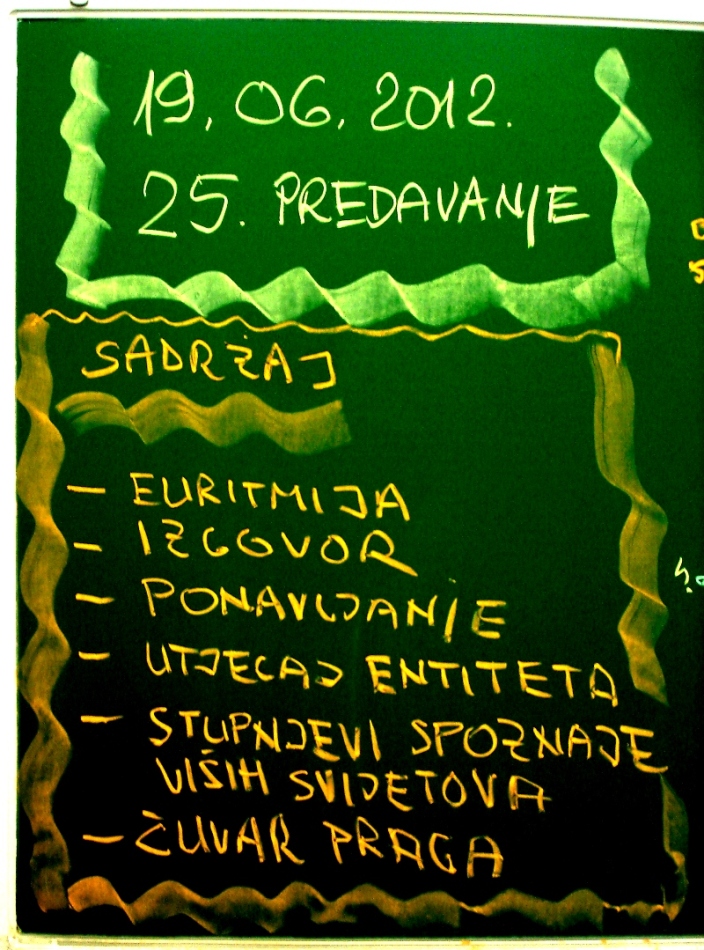 19. 06. 2012.
25. PREDAVANJE
SADRŽAJ
- EURITMIJA
- IZGOVOR
- PONAVLJANJE
- UTJECAJ ENTITETA
- STUPNJEVI SPOZNAJE
VIŠIH SVIJETOVA
- ČUVAR PRAGA